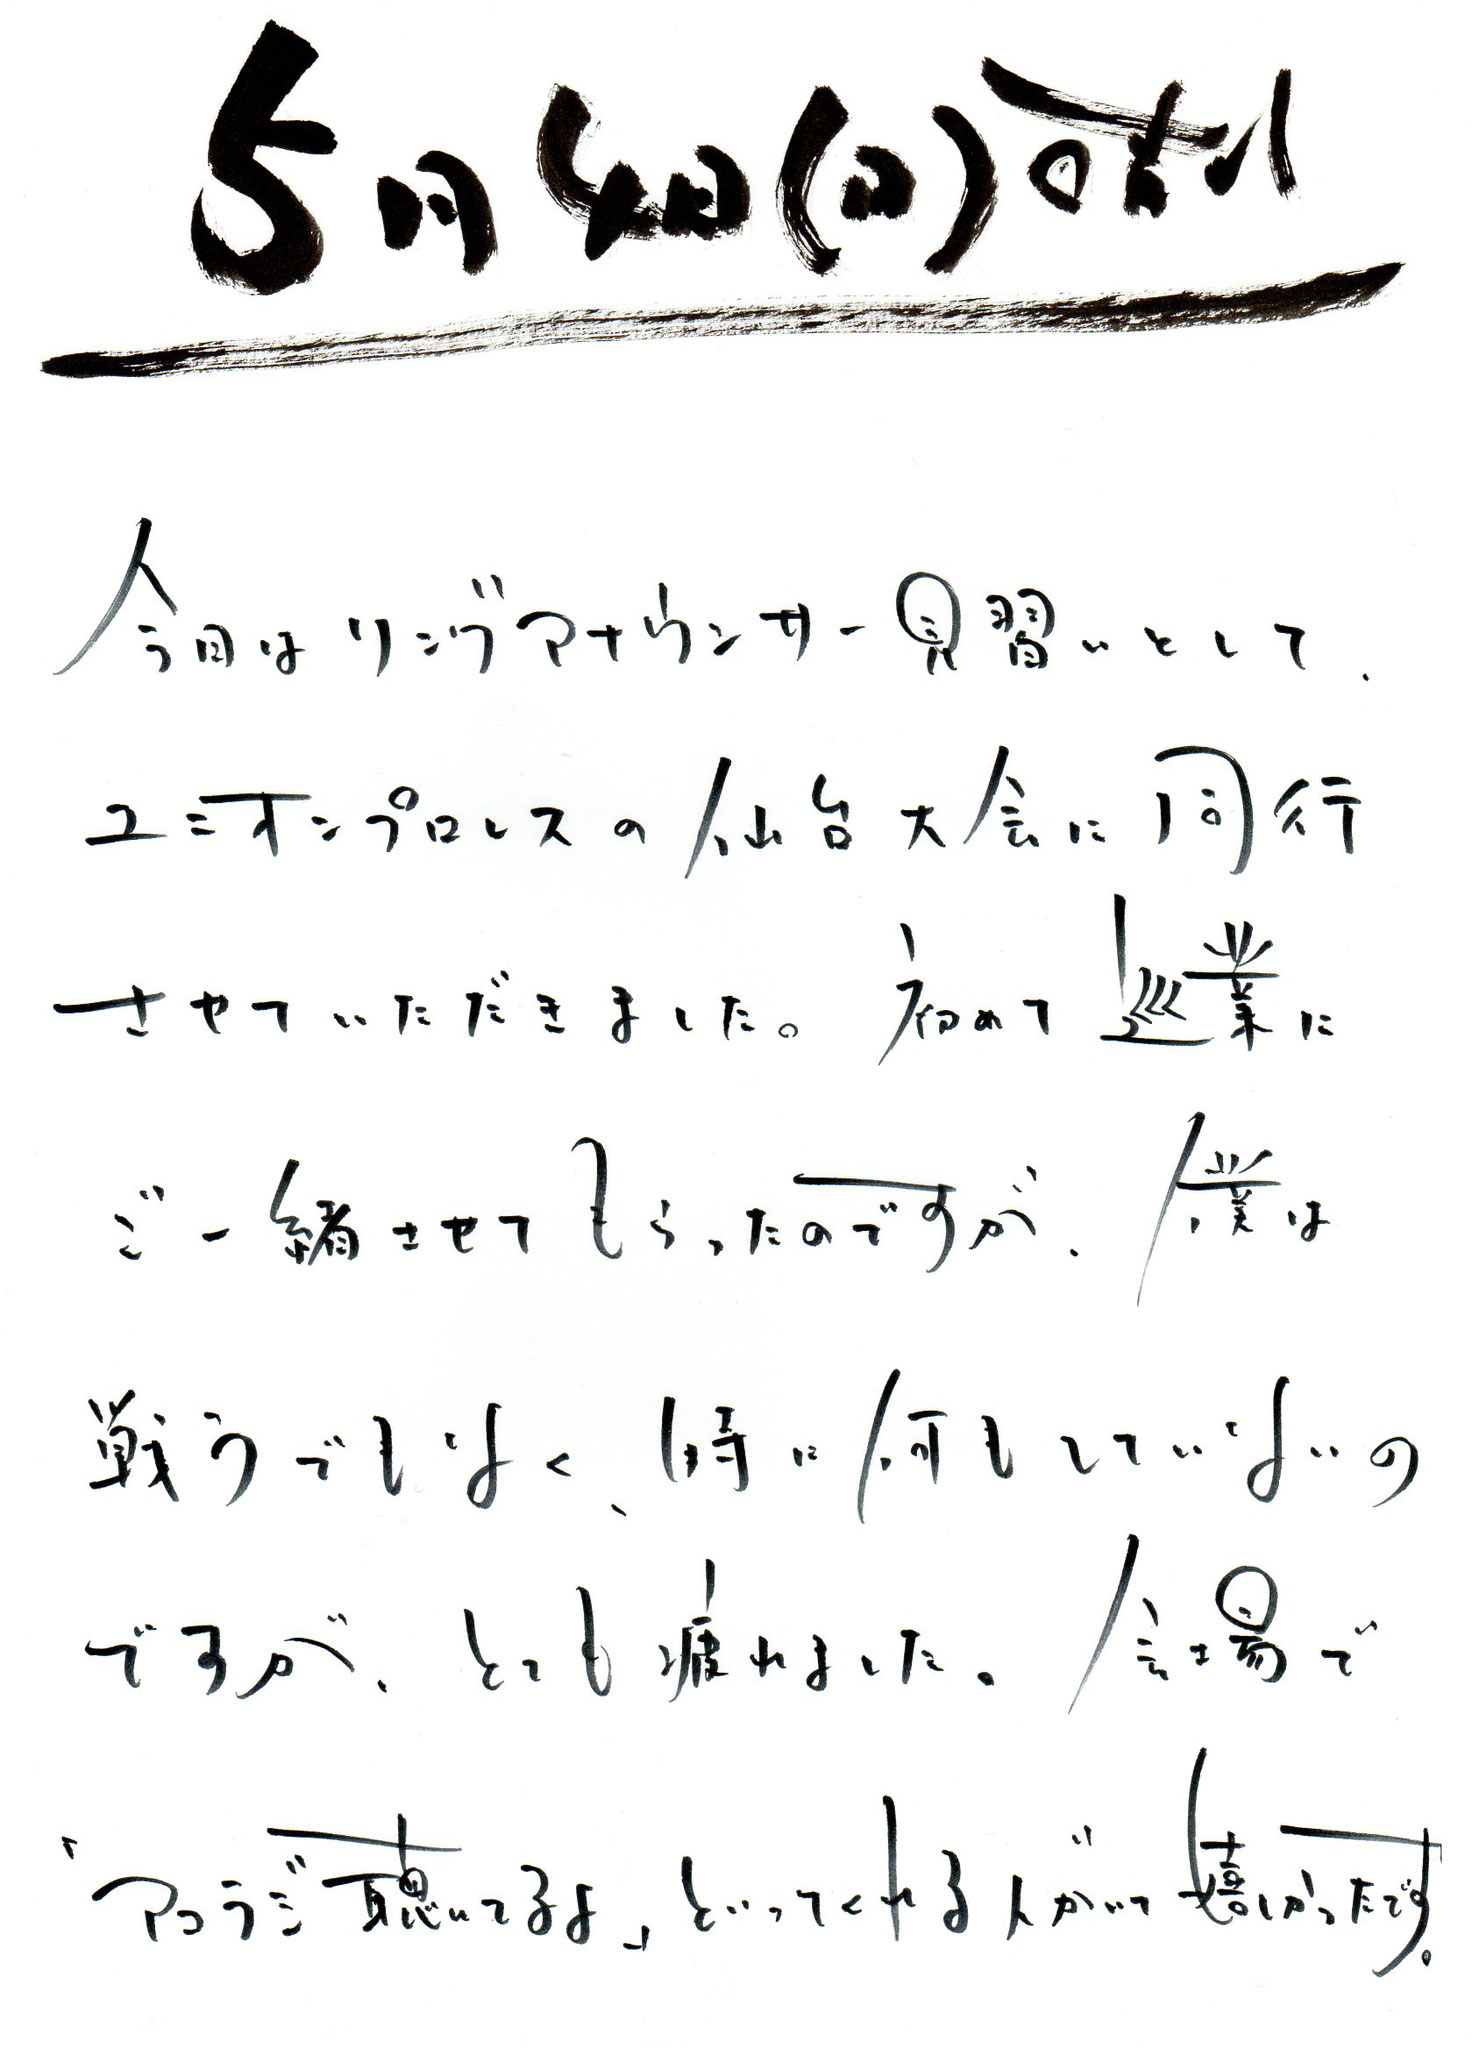 5月4日(日)晴れ
今日はリングアナウンサー見習いとして、
ユニオンプロレスの仙台大会に同行
させていただきました。初めて巡業に
ご一緒させてもらったのですが、僕は
戦うでもなく、特に何もしていないの
ですが、とても疲れました。会場で
「アコラジ聴いてるよ」といってくれる人がいて嬉しかったです。